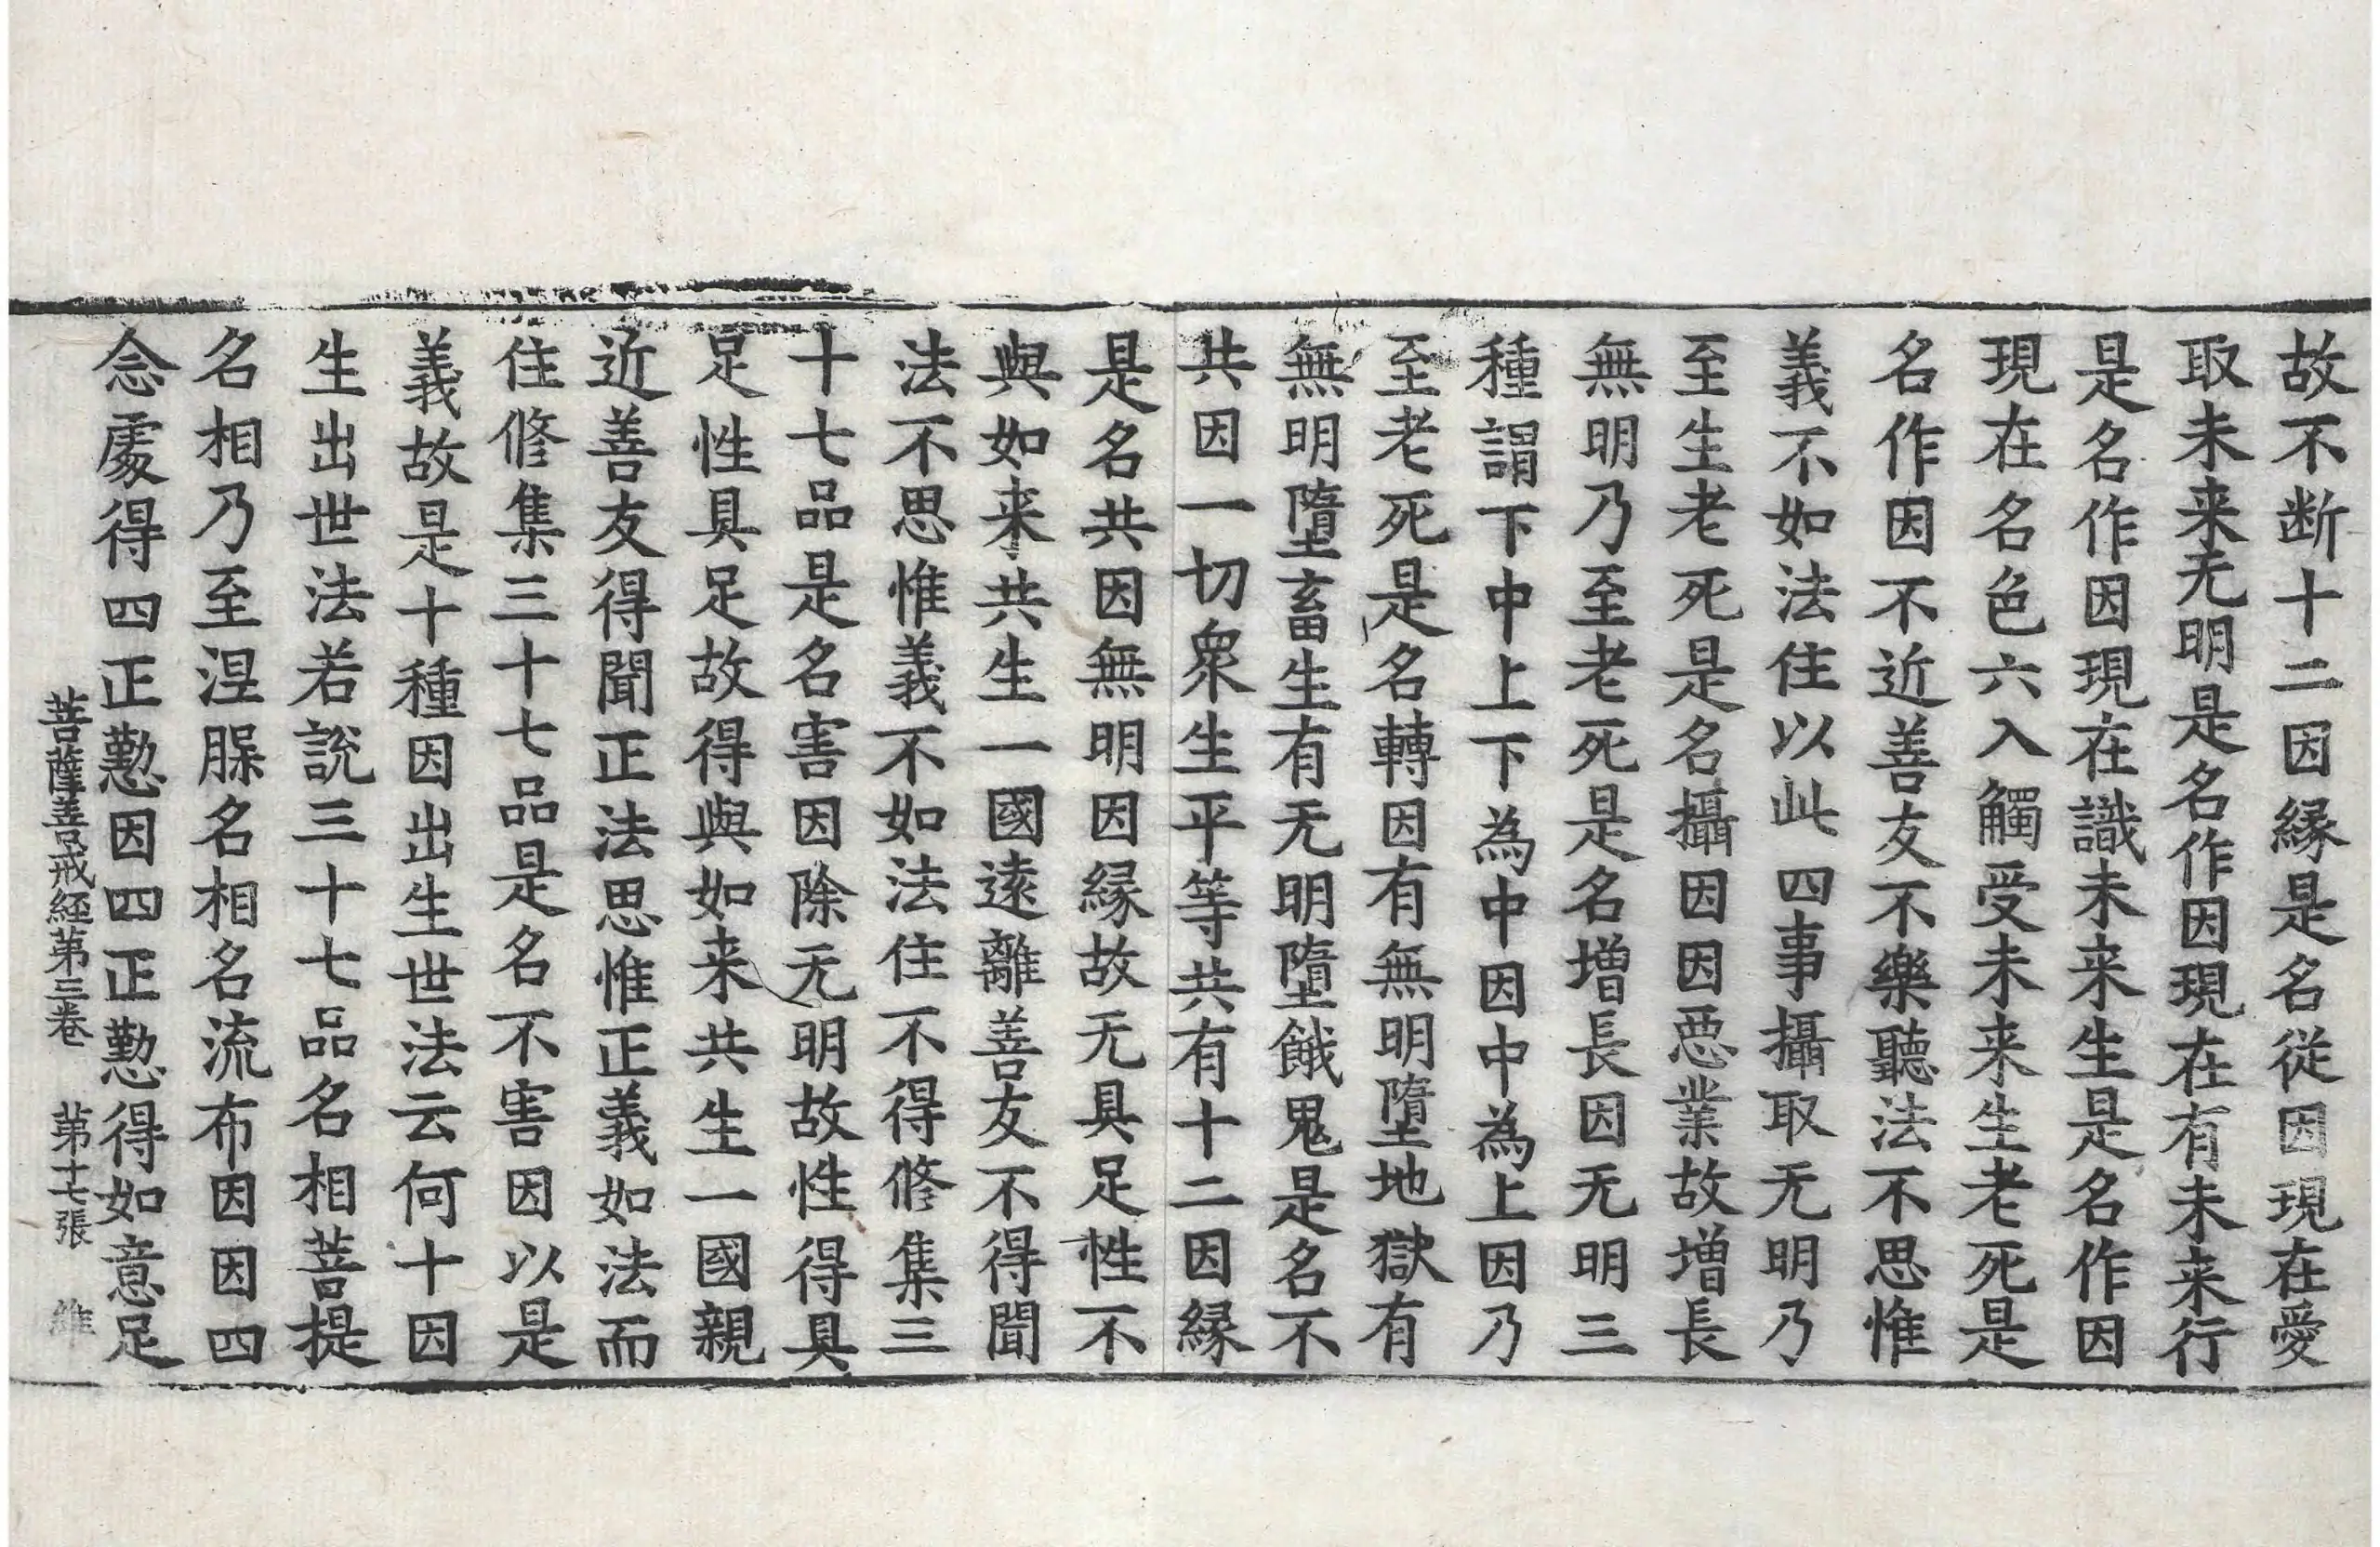 故不断十二因縁是名從因現在愛
取未来无明是名作因現在有未来行
是名作因現在識未来生是名作因
現在名色六入觸受未来生老死是
名作因不近善友不樂聽法不思惟
義不如法住以此四事攝取无明乃
至生老死是名攝因因惡業故增長
無明乃至老死是名增長因无明三
種謂下中上下為中因中為上因乃
至老死是名轉因有無明墮地獄有
無明墮畜生有无明墮餓鬼是名不
共因一切衆生平等共有十二因縁
是名共因無明因縁故无具足性不
與如来共生一國遠離善友不得聞
法不思惟義不如法住不得修集三
十七品是名害因除无明故性得具
足性具足故得與如来共生一國親
近善友得聞正法思惟正義如法而
住修集三十七品是名不害因以是
義故是十種因出生世法云何十因
生出世法若説三十七品名相菩提
名相乃至涅槃名相名流布因因四
念處得四正懃因四正懃得如意足
菩薩善戒經第三卷 第十七張 維